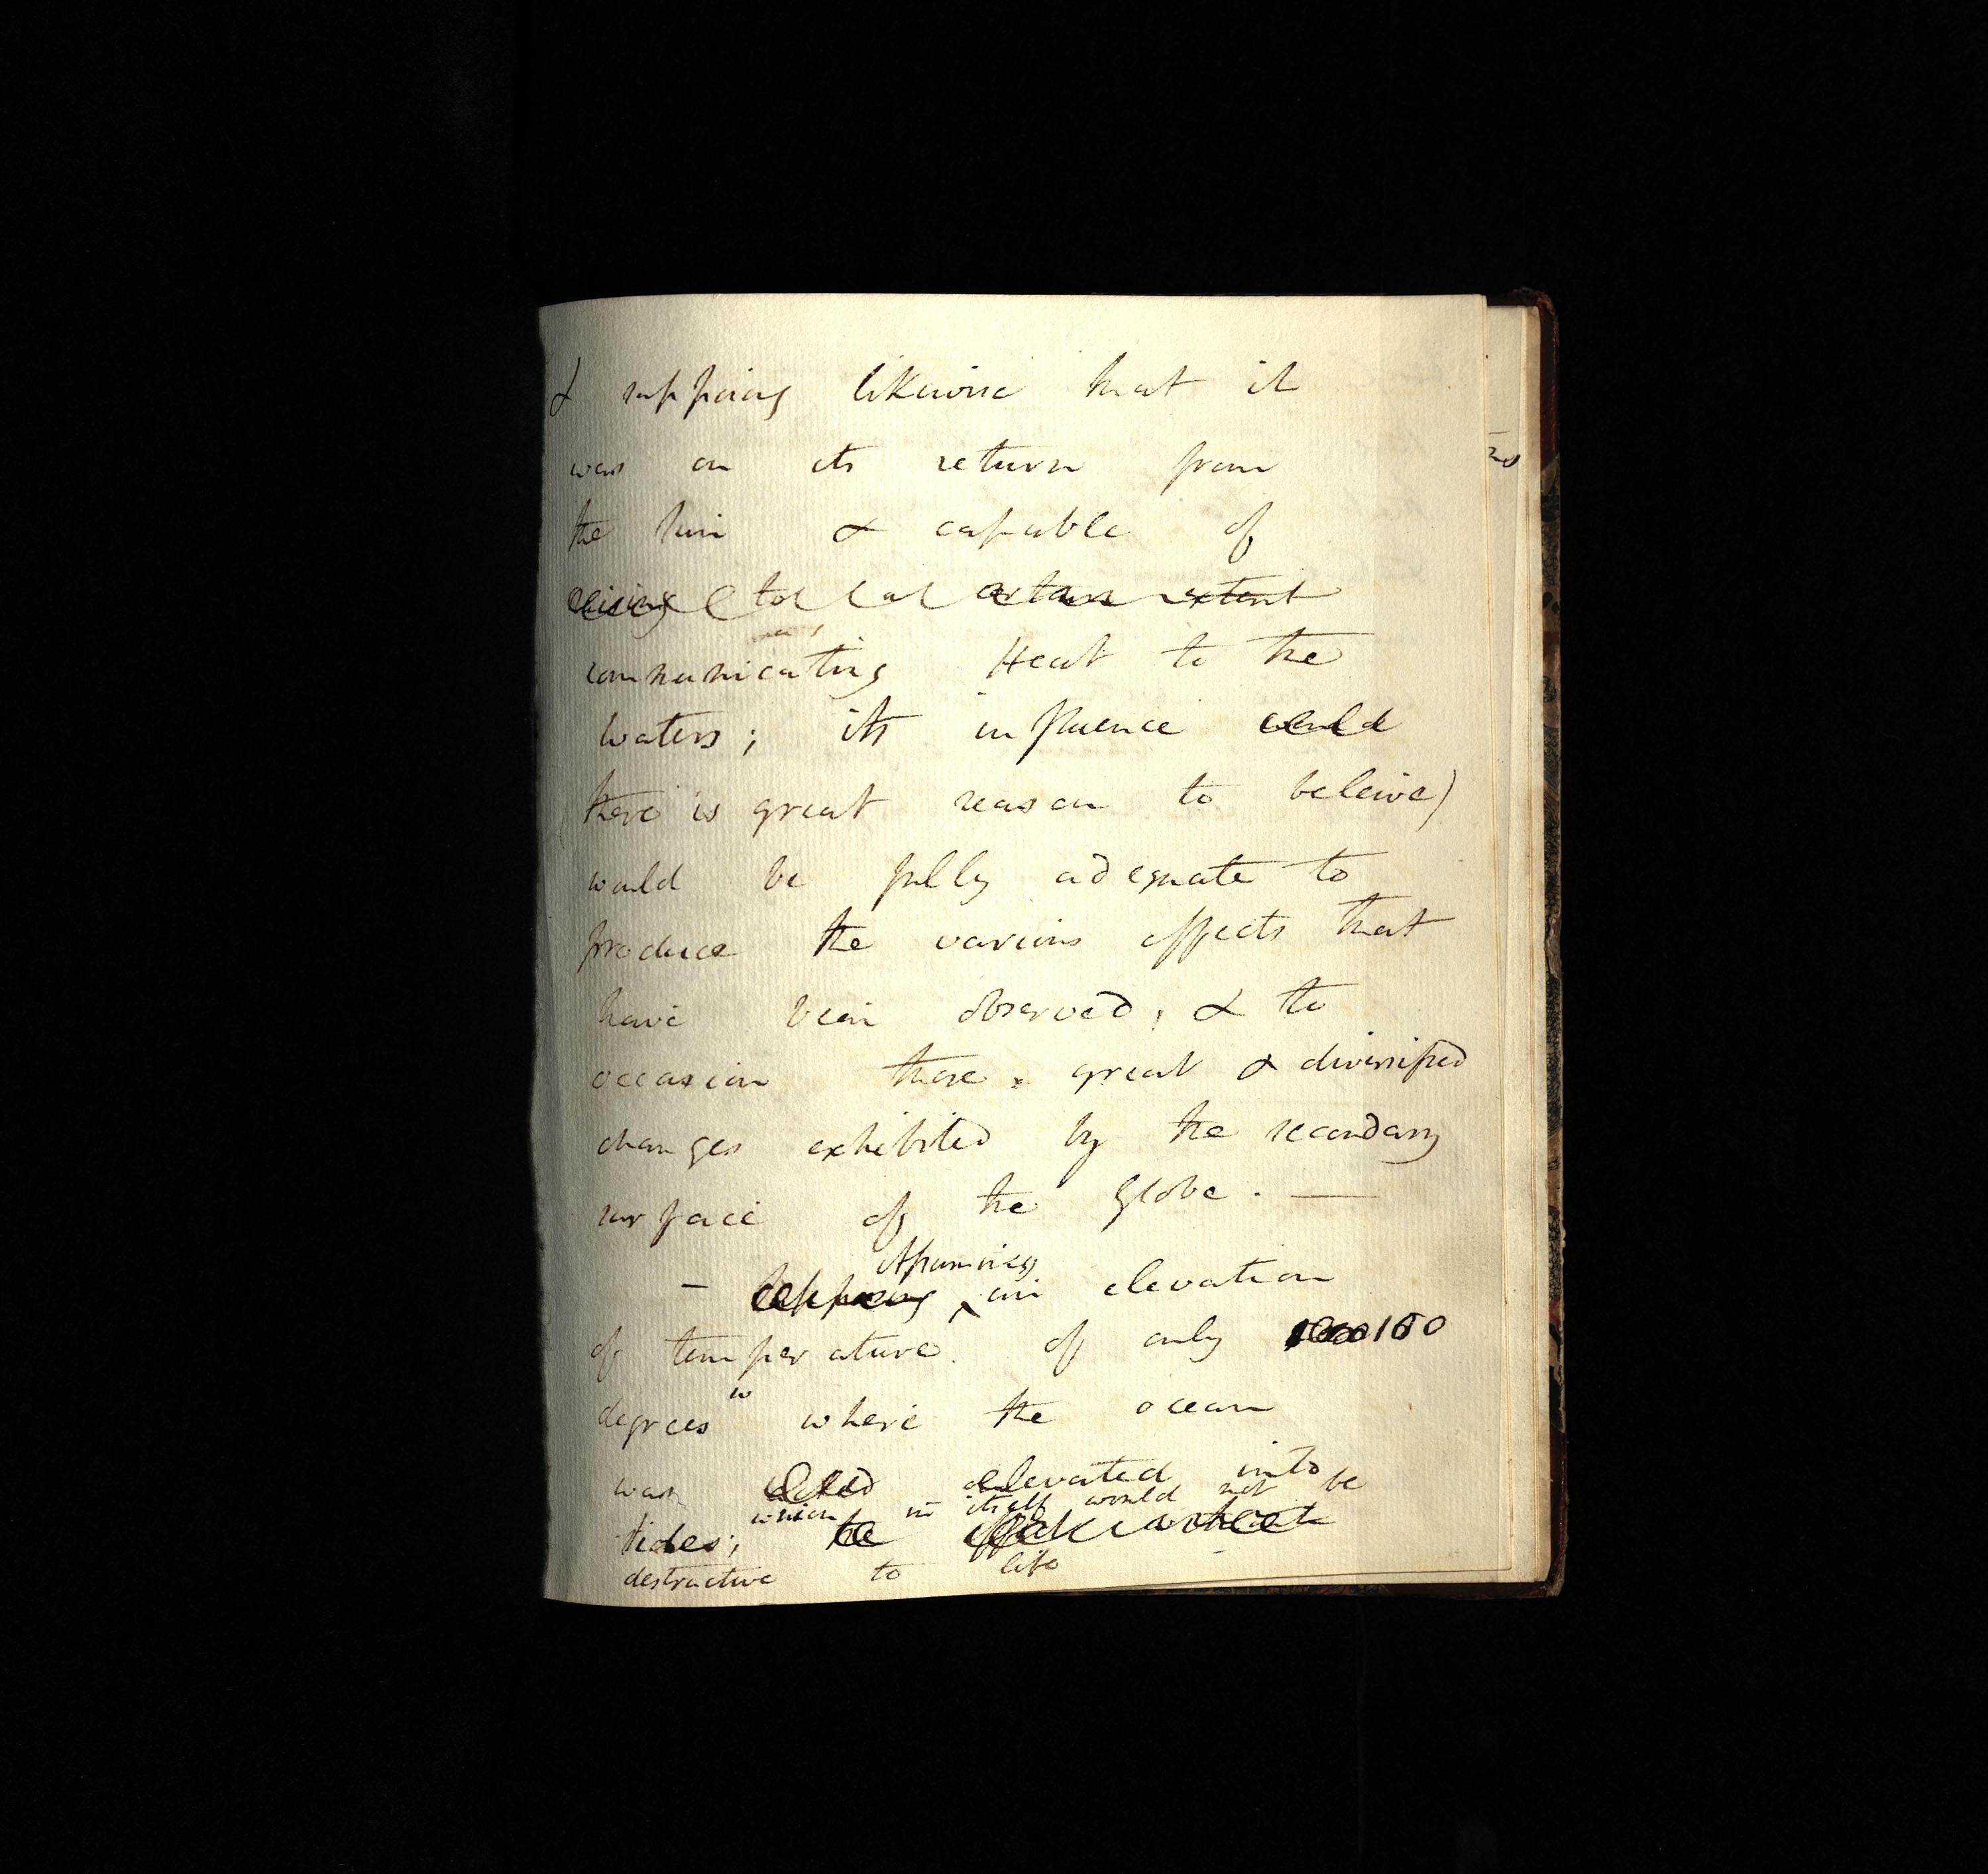 & supposing likewise that it
was on its return from
the sun & capable of
raising to a certain extent
communicating Heat to the
waters; its influence could
(there is great reason to beleive)
would be fully adequate to
produce the various effects that
have been observed, & to
occasion those great & diversified
changes exhibited by the secondary
surface of the Globe. —
Assuming
— Supposing ^ an elevation
of temperature of only 100
degrees where the ocean
was elevated into
which in itself would not be
tides; the effect
destructive to life